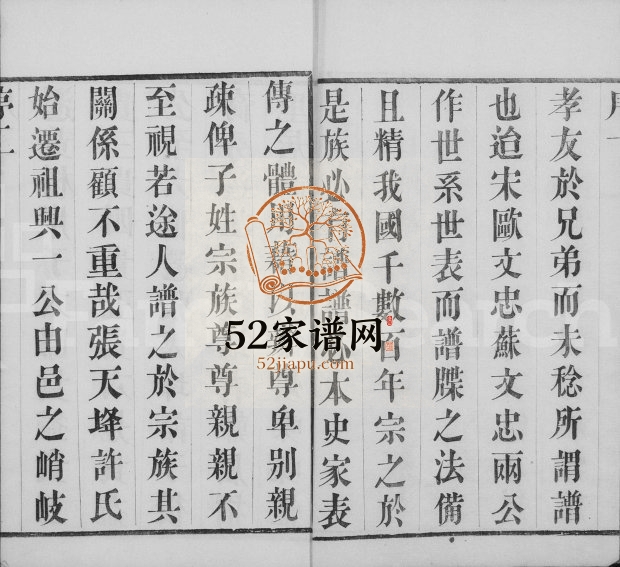 孝友於兄弟而未稔所謂譜
也迨宋歐文忠蘇文忠兩公
作世系世表而譜牒之法備
且精我國千數百年宗之於
是族必有譜譜必本史家表
傳之體用藉以尊卑別親
疎俾子姓宗族尊尊親親不
至視若途人譜之於宗族其
關係顧不重哉張天垾許氏
始遷祖興一公由邑之峭岐
序二
52家谱网
52jiapu.com